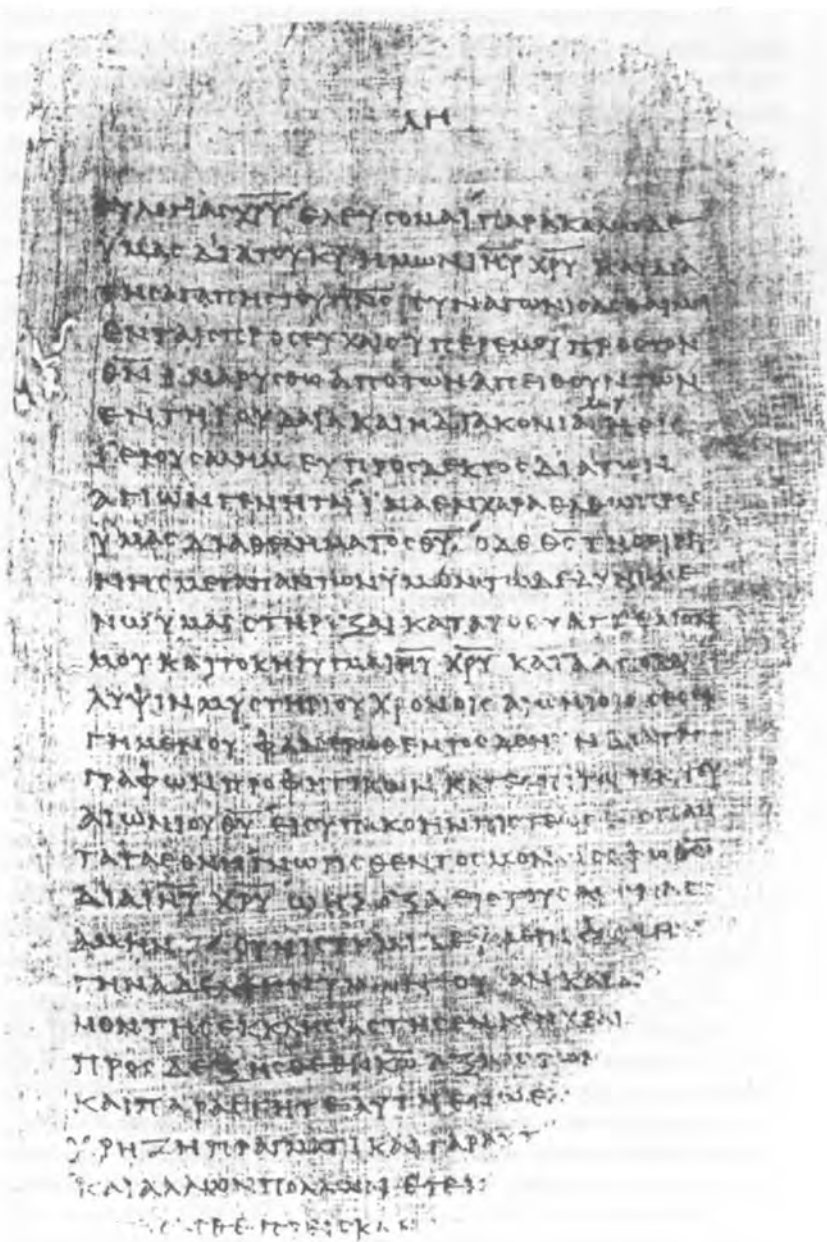 ΛΗ
ΕΥΛΟΓΙΑϹ Χ̅Ρ̅Υ̅ ΕΛΕΥϹΟΜΑΙ ΠΑΡΑΚΑΛΩ ΔΕ
ΥΜΑϹ ΔΙΑ ΤΟΥ Κ̅Υ̅ ΗΜΩΝ Ι̅Η̅Υ̅ Χ̅Ρ̅Υ̅ ΚΑΙ ΔΙΑ
ΤΗϹ ΑΓΑΠΗϹ ΤΟΥ Π̅Ν̅Ο̅Ϲ̅ ϹΥΝΑΓΩΝΙϹΑϹΘΑΙ ΜΟΙ
ΕΝ ΤΑΙϹ ΠΡΟϹΕΥΧΑΙϹ ΥΠΕΡ ΕΜΟΥ ΠΡΟϹ ΤΟΝ
Θ̅Ν̅ ΙΝΑ ΡΥϹΘΩ ΑΠΟ ΤΩΝ ΑΠΕΙΘΟΥΝΤΩΝ
ΕΝ ΤΗ ΙΟΥΔΑΙΑ ΚΑΙ Η ΔΙΑΚΟΝΙΑ ΜΟΥ Η ΕΙϹ
ΙΕΡΟΥϹΑΛΗΜ ΕΥΠΡΟϹΔΕΚΤΟϹ ΔΙΑ ΤΩΝ
ΑΓΙΩΝ ΓΕΝΗΤΑΙ ΙΝΑ ΕΝ ΧΑΡΑ ΕΛΘΩ ΠΡΟϹ
ΥΜΑϹ ΔΙΑ ΘΕΛΗΜΑΤΟϹ Θ̅Υ̅ Ο ΔΕ Θ̅Ϲ̅ ΤΗϹ ΕΙΡΗ
ΝΗϹ ΜΕΤΑ ΠΑΝΤΩΝ ΥΜΩΝ ΤΩ ΔΕ ΔΥΝΑΜΕ
ΝΩ ΥΜΑϹ ϹΤΗΡΙΞΑΙ ΚΑΤΑ ΤΟ ΕΥΑΓΓΕΛΙΟΝ
ΜΟΥ ΚΑΙ ΤΟ ΚΗΡΥΓΜΑ Ι̅Η̅Υ̅ Χ̅Ρ̅Υ̅ ΚΑΤΑ ΑΠΟΚΑ
ΛΥΨΙΝ ΜΥϹΤΗΡΙΟΥ ΧΡΟΝΟΙϹ ΑΙΩΝΙΟΙϹ ϹΕϹΙ
ΓΗΜΕΝΟΥ ΦΑΝΕΡΩΘΕΝΤΟϹ ΔΕ ΝΥΝ ΔΙΑ ΤΕ
ΓΡΑΦΩΝ ΠΡΟΦΗΤΙΚΩΝ ΚΑΤ ΕΠΙΤΑΓΗΝ ΤΟΥ
ΑΙΩΝΙΟΥ Θ̅Υ̅ ΕΙϹ ΥΠΑΚΟΗΝ ΠΙϹΤΕΩϹ ΕΙϹ ΠΑΝ
ΤΑ ΤΑ ΕΘΝΗ ΓΝΩΡΙϹΘΕΝΤΟϹ ΜΟΝΩ ϹΟΦΩ Θ̅Ω̅
ΔΙΑ Ι̅Η̅Υ̅ Χ̅Ρ̅Υ̅ Ω Η ΔΟΞΑ ΕΙϹ ΤΟΥϹ ΑΙΩΝΑϹ
ΑΜΗΝ ϹΥΝΙϹΤΗΜΙ ΔΕ ΦΟΙΒΗΝ
ΤΗΝ ΑΔΕΛΦΗΝ ΥΜΩΝ ΟΥϹΑΝ ΚΑΙ ΔΙ
ΚΟΝΟΝ ΤΗϹ ΕΚΚΛΗϹΙΑϹ ΤΗϹ ΕΝ ΚΕΝΧΡΕΑΙ
ΠΡΟϹΔΕΞΗϹΘΕ ΕΝ Κ̅Ω̅ ΑΞΙΩϹ ΤΩΝ
ΚΑΙ ΠΑΡΑϹΤΗΤΕ ΑΥΤΗ ΕΝ Ω Ε
ΧΡΗΖΗ ΠΡΑΓΜΑΤΙ ΚΑΙ ΓΑΡ ΑΥΤ
ΚΑΙ ΑΛΛΩΝ ΠΟΛΛΩΝ ΕΓΕ